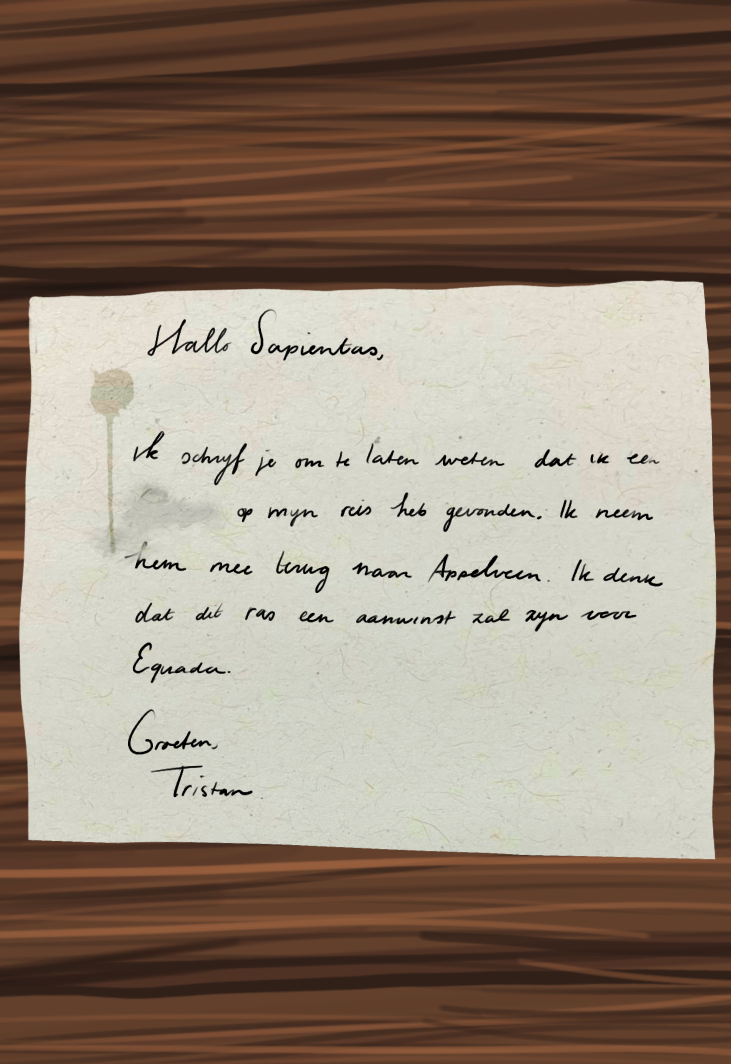 Hallo Sapientas,
Ik schrijf je om te laten weten dat ik een
op mijn reis heb gevonden. Ik neem
hem mee terug naar Appelveen. Ik denk
dat dit ras een aanwinst zal zijn voor
Equada.
Groeten,
Tristan